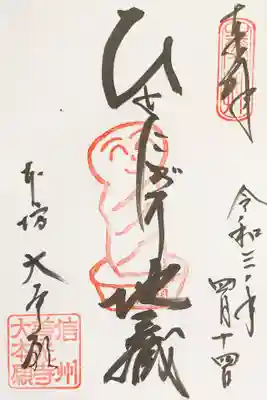 奉拝
令和三年四月十四日
ひとにぎり地蔵
本坊 大本願
信州
善光寺
大本願